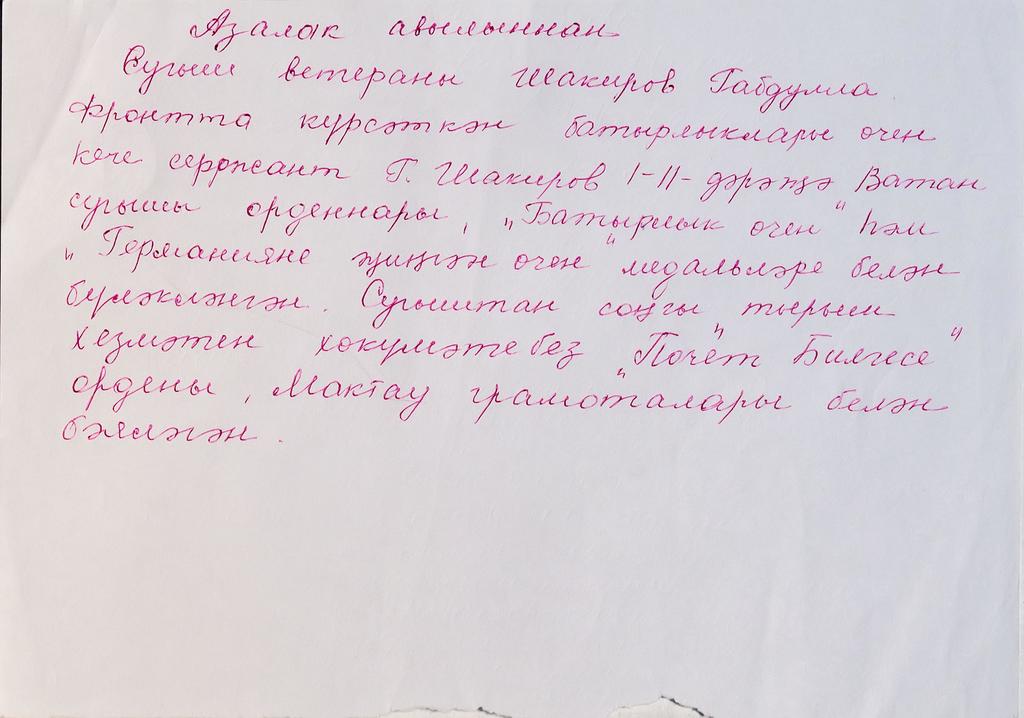 Азалак авылыннан
Сугыш ветераны Шакиров Габдулла
Фронтта күрсәткән батырлыклары очен
кече сержант Г. Шакиров I-II- дәрәҗә Ватан
сугышы орденнары, „Батырлык очен" һәм
„Германияне җиңгән очен" медальләре белән
бүләкләнгән. Сугыштан соңгы тырыш
хезмәтен хөкүмәтебез „Почёт Билгесе"
ордены, Мактау грамоталары белән
бәяләгән.